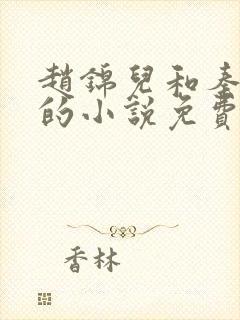 趙錦兒和秦
的小說免費
香林